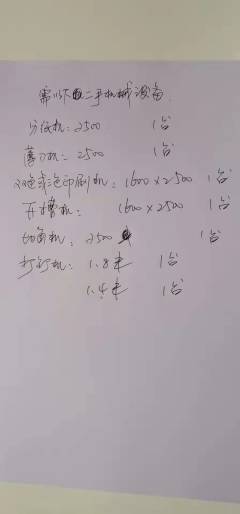 需以下二手机械设备
分纸机:2500 1台
薄刀机:2500 1台
双色或三色印刷机:1600×2500 1台
开槽机:1600×2500 1台
切角机:2500 1台
打钉机:1.8米 1台
1.4米 1台